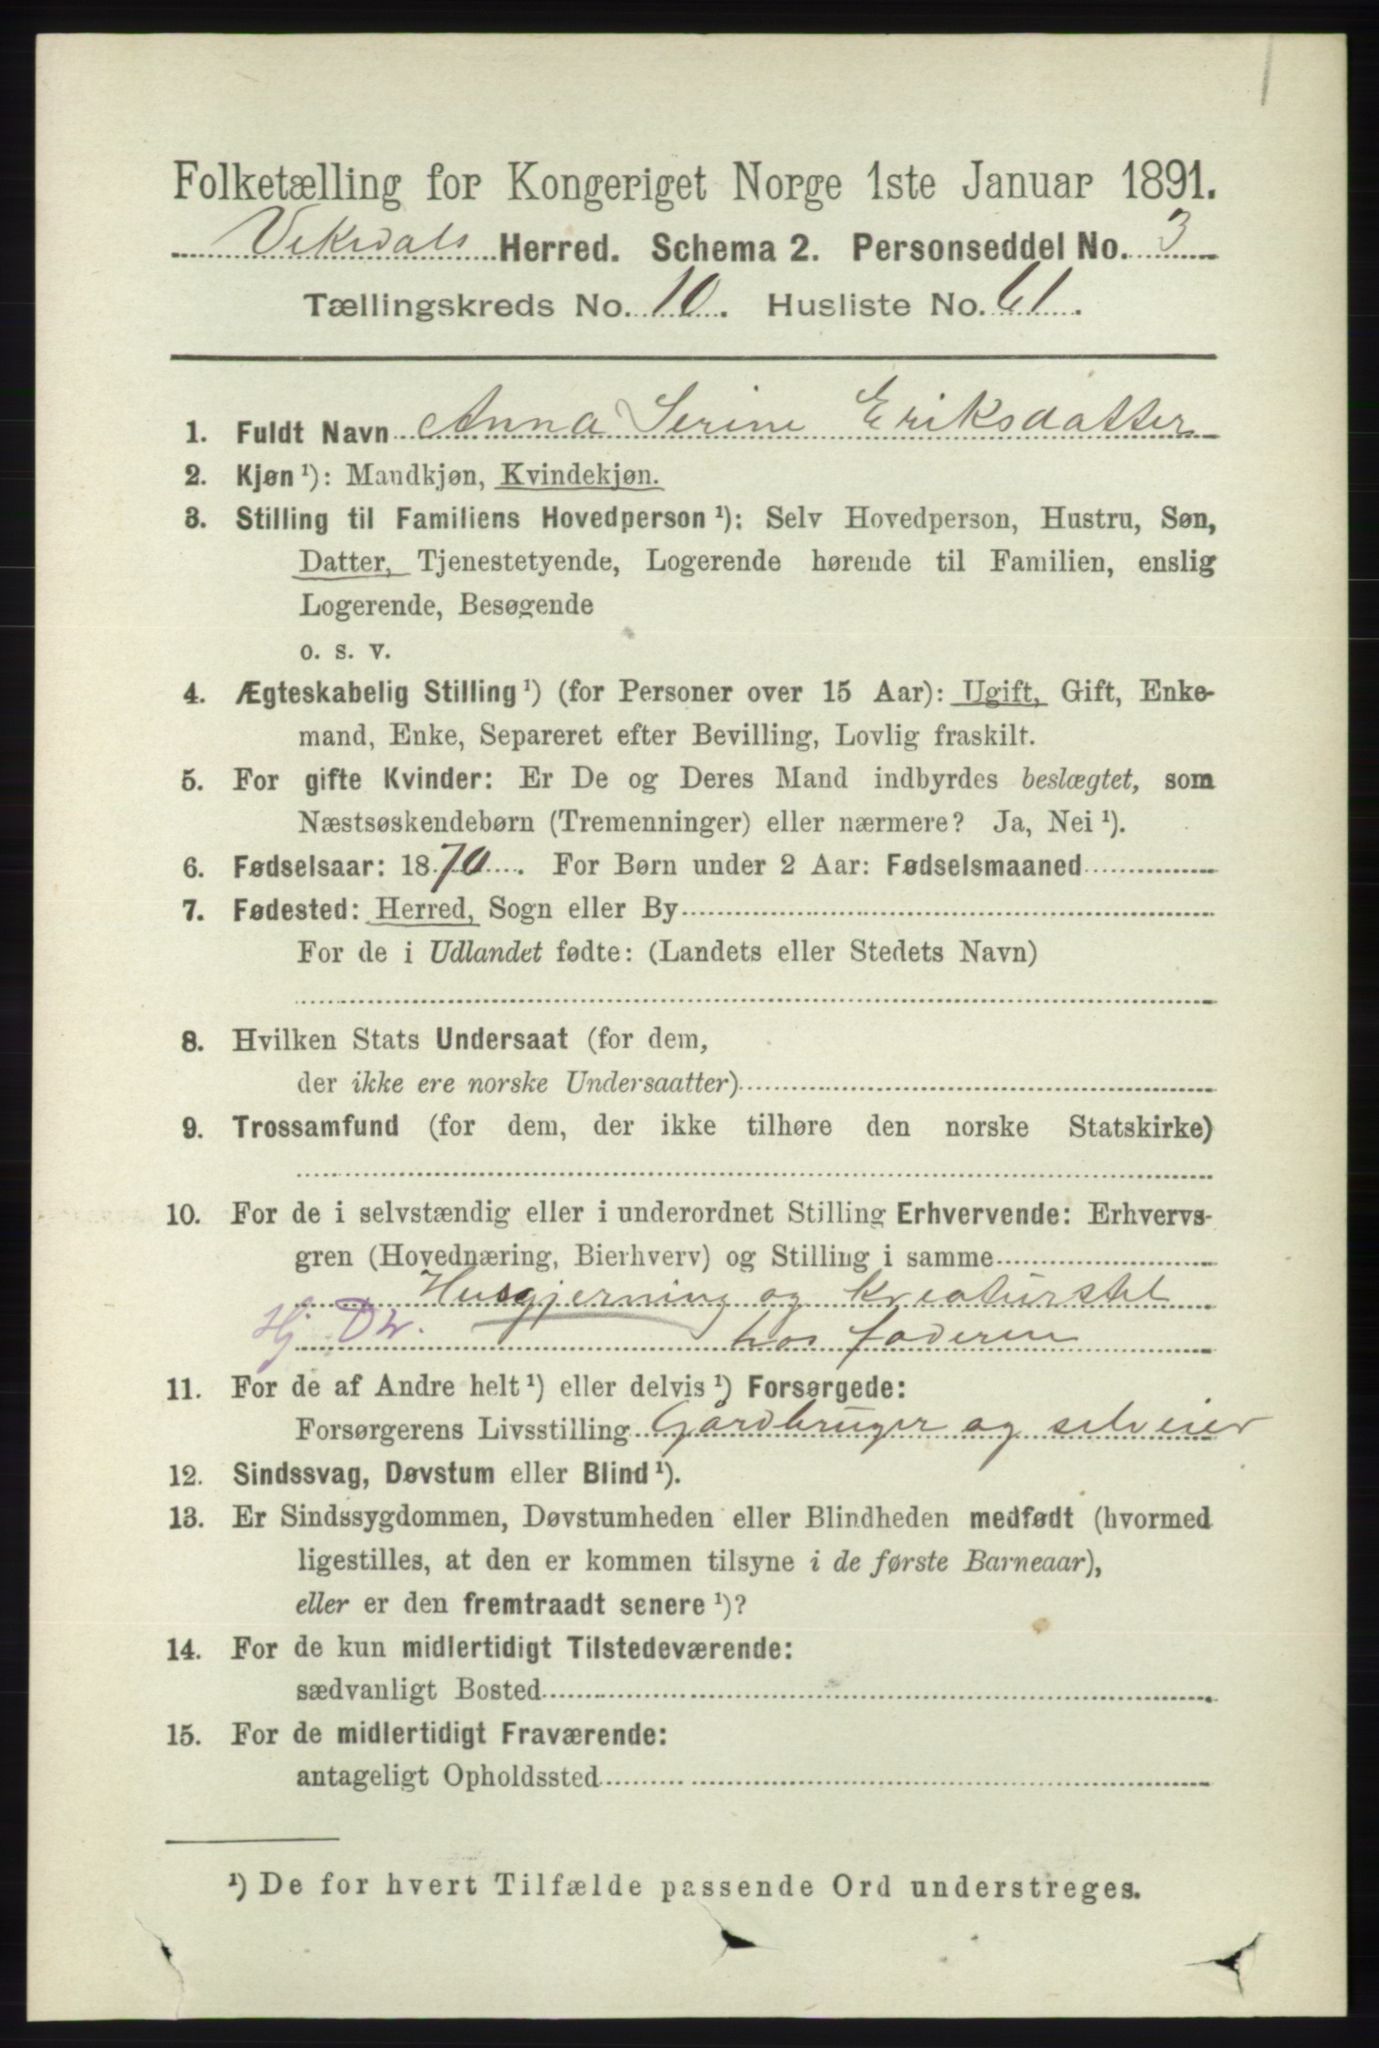 Folketælling for Kongeriget Norge 1ste Januar 1891.
Vikedals Herred. Schema 2. Personseddel No. 3
Tællingskreds No. 10. Husliste No. 61.
1. Fuldt Navn Anna Serine Eriksdatter
2. Kjøn ¹): Mandkjøn, Kvindekjøn.
3. Stilling til Familiens Hovedperson ¹): Selv Hovedperson, Hustru, Søn,
Datter, Tjenestetyende, Logerende hørende til Familien, enslig
Logerende, Besøgende
o. s. v.
4. Ægteskabelig Stilling ¹) (for Personer over 15 Aar): Ugift, Gift, Enke-
mand, Enke, Separeret efter Bevilling, Lovlig fraskilt.
5. For gifte Kvinder: Er De og Deres Mand indbyrdes beslægtet, som
Næstsøskendebørn (Tremenninger) eller nærmere? Ja, Nei ¹).
6. Fødselsaar: 1870. For Børn under 2 Aar: Fødselsmaaned
7. Fødested: Herred, Sogn eller By
For de i Udlandet fødte: (Landets eller Stedets Navn)
8. Hvilken Stats Undersaat (for dem,
der ikke ere norske Undersaatter)
9. Trossamfund (for dem, der ikke tilhøre den norske Statskirke)
10. For de i selvstændig eller i underordnet Stilling Erhvervende: Erhvervs-
gren (Hovednæring, Bierhverv) og Stilling i samme
Husgjerning og kreaturstel
Hj Dtr. hos faderen
11. For de af Andre helt ¹) eller delvis ¹) Forsørgede:
Forsørgerens Livsstilling Gårdbruger og selveier
12. Sindssvag, Døvstum eller Blind ¹).
13. Er Sindssygdommen, Døvstumheden eller Blindheden medfødt (hvormed
ligestilles, at den er kommen tilsyne i de første Barneaar),
eller er den fremtraadt senere ¹)?
14. For de kun midlertidigt Tilstedeværende:
sædvanligt Bosted
15. For de midlertidigt Fraværende:
antageligt Opholdssted
¹) De for hvert Tilfælde passende Ord understreges.